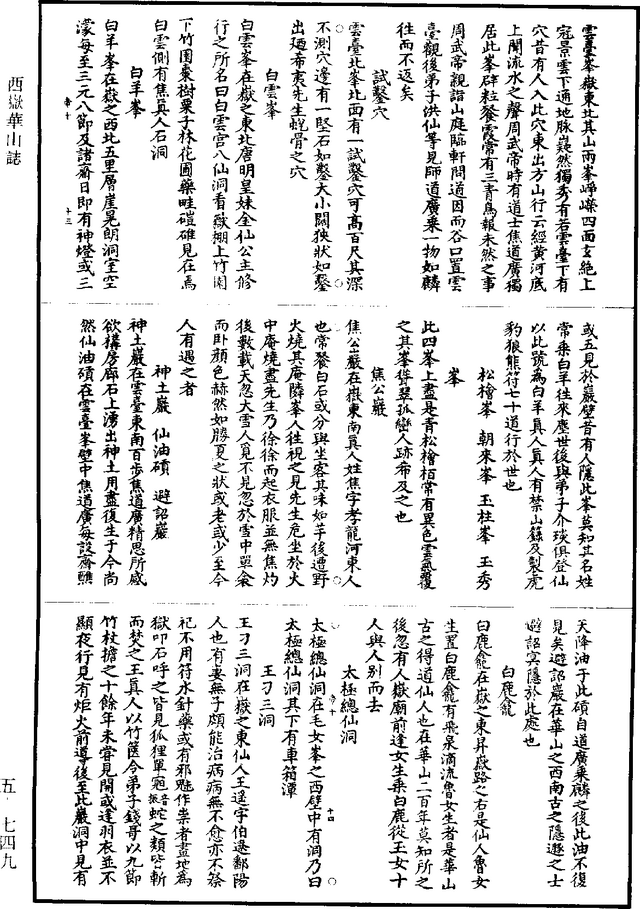 雲臺峯嶽東北其山兩峯崢嶸四面玄絶上
冠景雲下通地脉嶷然獨秀有若雲臺下有
穴昔有人入此穴東出方山行云經黃河底
上聞流水之聲周武帝時有道士焦道廣獨
居此峯辟粒餐霞常有三青鳥報未然之事
周武帝親詣山庭臨軒問道因而谷口置雲
臺觀後弟子洪仙等見師道廣乗一物如麟
往而不返矣
試鑿穴
雲臺北峯北面有一試鑿穴可高百尺其深
不測穴邊有一堅石如鑿大小闊狹狀如鑿
出廼希夷先生蛻骨之穴
白雲峯
白雲峯在嶽之東北唐明皇妹金仙公主修
行之所名曰白雲宫八仙洞看嶽棚上竹園
下竹園棗樹栗子林花園藥畦磑碓見在焉
白雲側有焦真人石洞
白羊峯
白羊峯在嶽之西北五里層崖晃朗洞室空
濛每至三元八節及諸齋日即有神燈或三
或五見於巖壁昔有人隱此峯莫知其名姓
常乗白羊往來塵世後與弟子介琰俱登仙
以此號為白羊真人真人有禁山籙及製虎
豹狼熊符七十道行於世也
松檜峯 朝來峯 玉柱峯 玉秀
峯
此四峯上盡是青松檜栢常有異色雲氣覆
之其峯聳翠孤巒人跡希及之也
焦公巖
焦公巖在嶽東南真人姓焦字孝龍河東人
也常餐白石或分與坐客其味如芋後遭野
火燒其庵隣峯人往視之見先生危坐於火
中庵燒盡先生乃徐徐而起衣服並無焦灼
後數載天忽大雪人覓不見忽於雪中單衾
而卧顔色赫然如勝夏之狀或老或少至今
人有遇之者
神土巖 仙油磧 避詔巖
神土巖在雲臺東南百步焦道廣精思所感
欲構房廊石上湧出神土用盡復生于今尚
然仙油磧在雲臺峯壁中焦道廣每設齋醮
天降油于此磧自道廣乗麟之後此油不復
見矣避詔巖在華山之西南古之隱遯之士
避詔㝠隱於此處也
白鹿龕
白鹿龕在嶽之東昇嶽路之右是仙人魯女
生置白鹿龕有飛泉滴流魯女生者是華山
古之得道仙人也在華山二百年莫知所之
後忽有人嶽廟前逢女生乗白鹿從玉女十
人與人别而去
太極總仙洞
太極總仙洞在毛女峯之西壁中有洞乃曰
太極總仙洞其下有車箱潭
王刁三洞
王刁三洞在嶽之東仙人王遥字伯遼鄱陽
人也有妻無子頗能治病病無不愈亦不祭
祀不用符水針藥或有邪魅作祟者畫地為
獄叩石呼之皆見狐狸單䖳音振蛇之類皆斬
而焚之王真人以竹篋令弟子錢哥以九節
竹杖擔之十餘年未嘗見開或逢羽衣並不
顯夜行見有炬火前導後至此巖洞中見有
西嶽華山誌
五·七四九